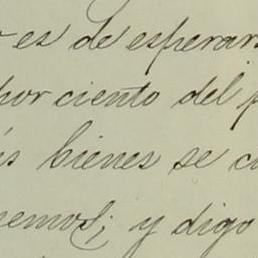 es de esperar
por ciento del
bienes se
y digo